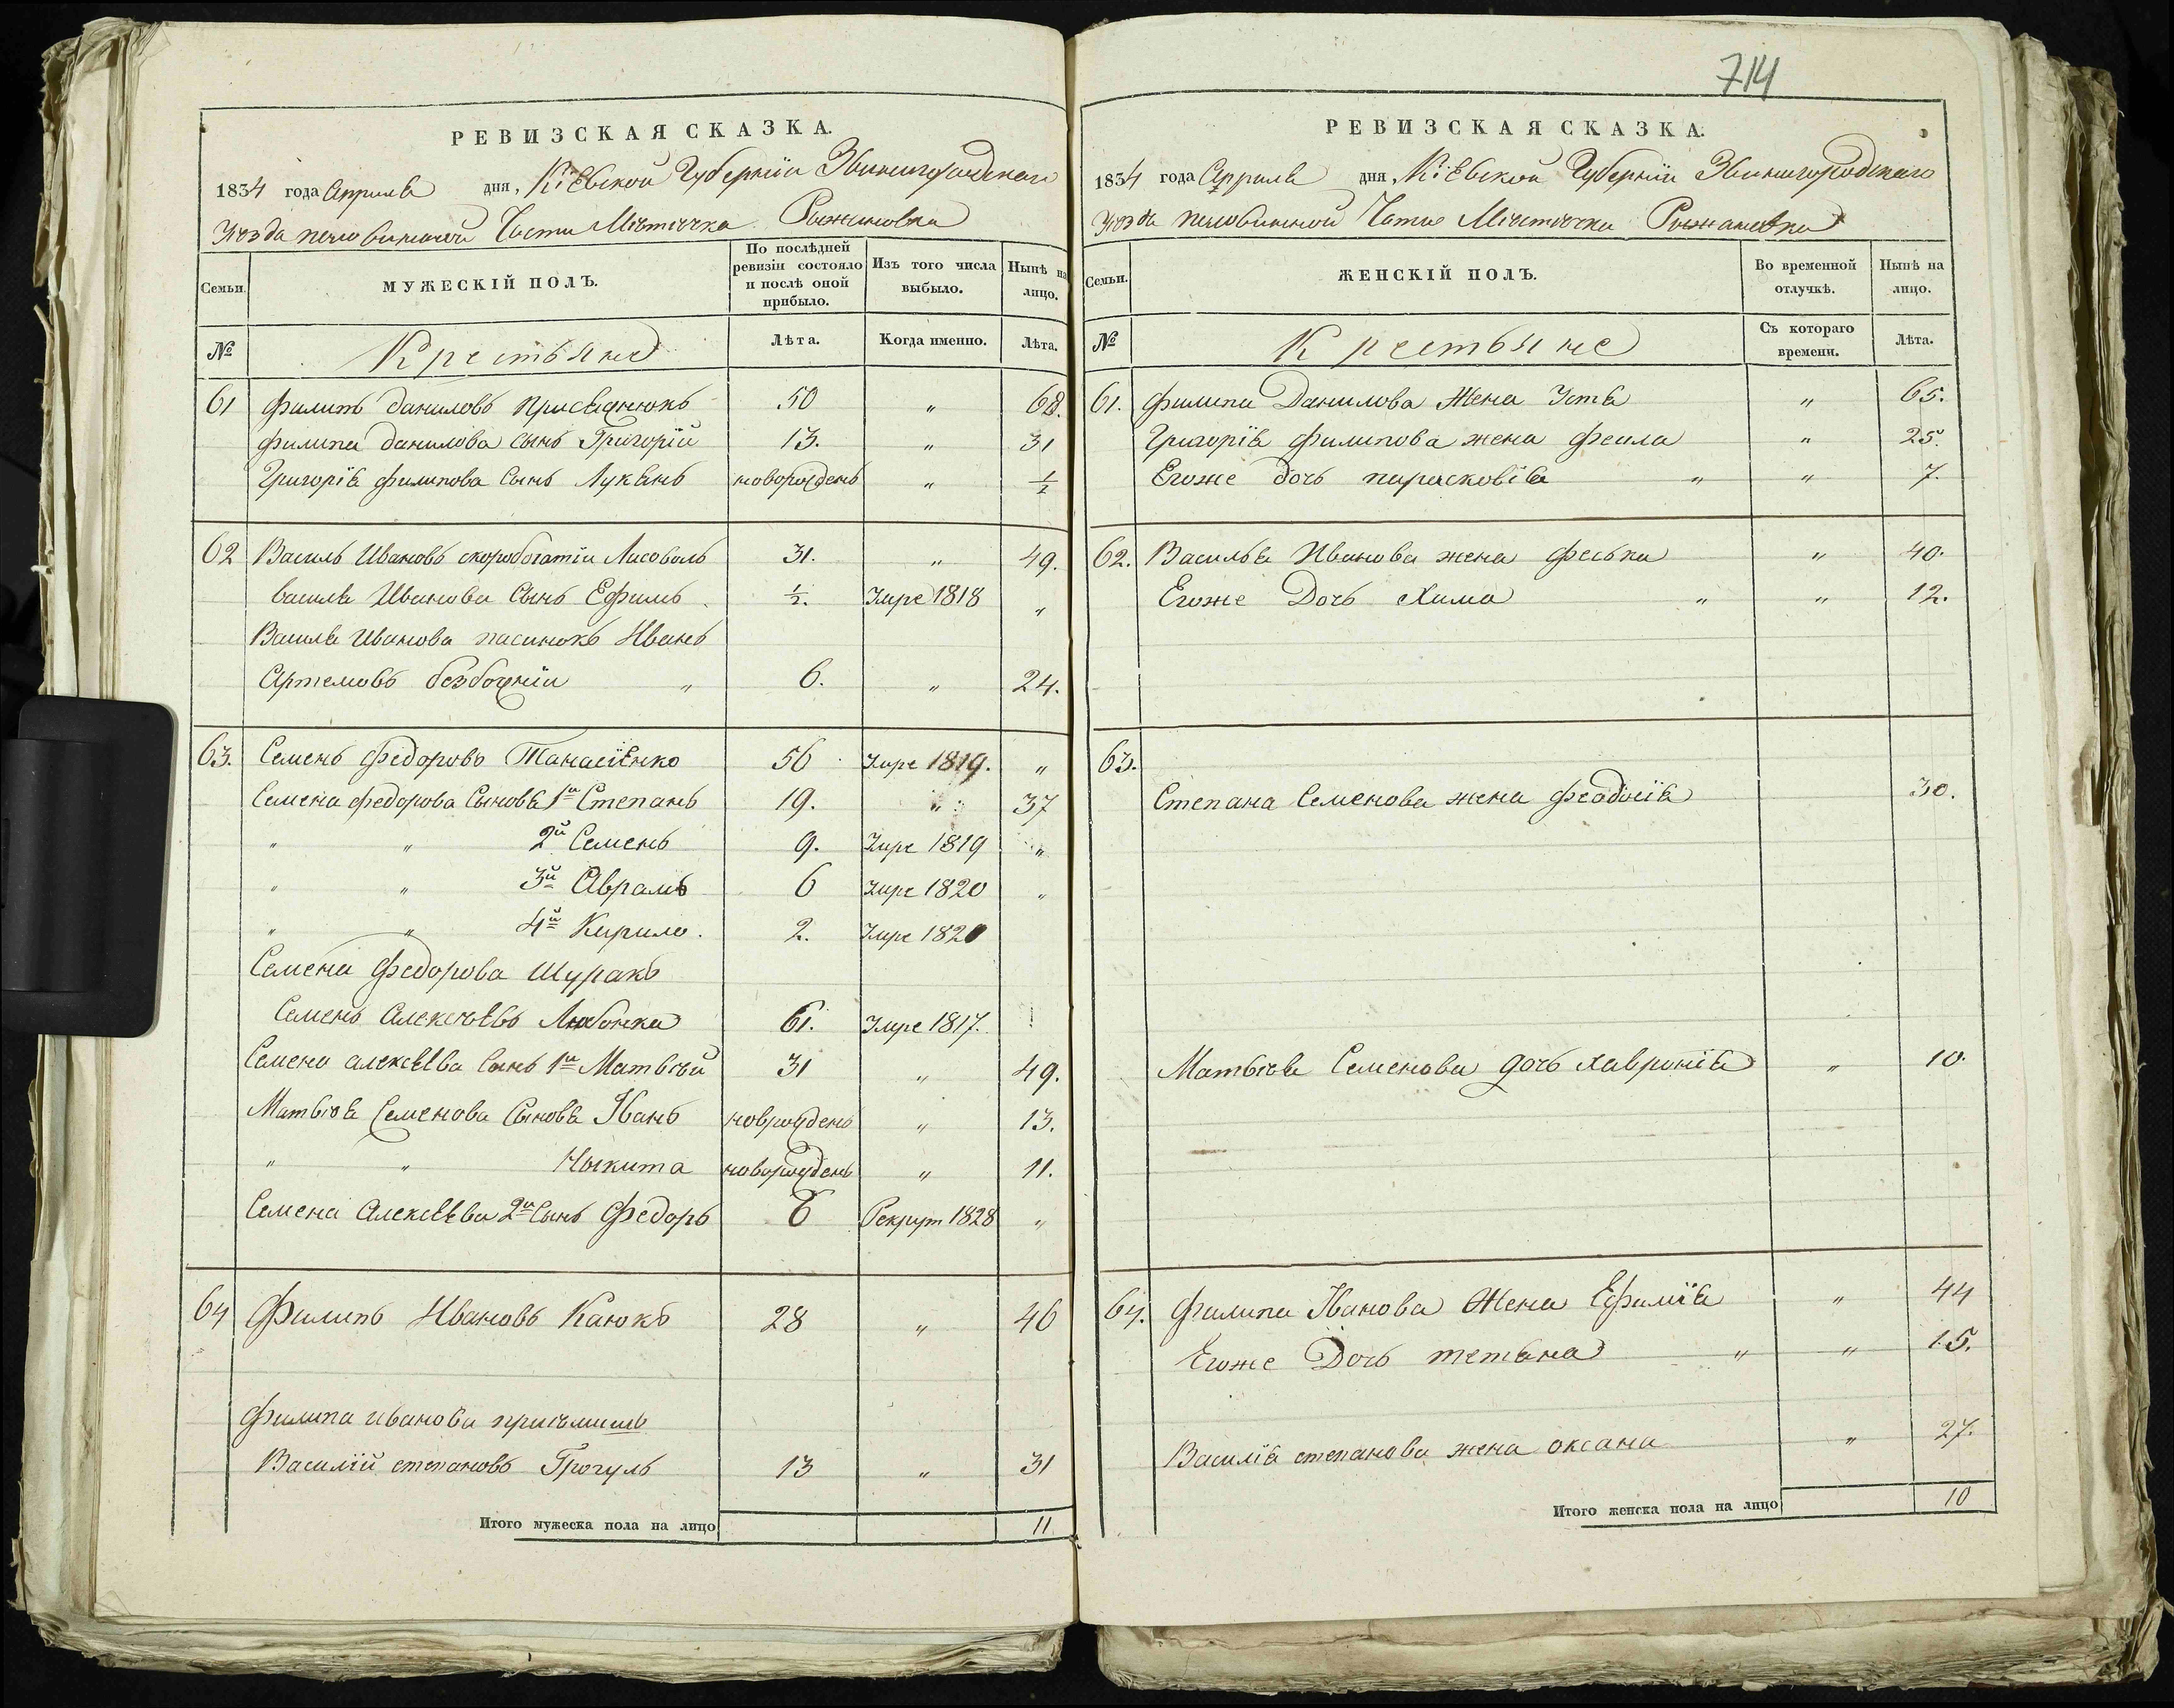 714
РЕВИЗСКАЯ СКАЗКА.
1834 года Апреля дня, Кіевской Губерніи Звинигородскаго
Уезда половинной Части Месточка Рыжановки
Семьи. МУЖЕСКІЙ ПОЛЪ. По послѣдней ревизіи состояло и послѣ оной прибыло. Изъ того числа выбыло. Нынѣ на лицо.
№ Крестьяне Лѣта. Когда именно. Лѣта.
61 Филипъ Даниловъ Присяднюкъ 50 " 68.
Филипа Данилова Сынъ Григорій 13. " 31
Григорія Филипова Сынъ Лукянъ новорожденъ " ½
62 Василь Ивановъ скоробогатіи Лисоволъ 31. " 49.
Василя Иванова Сынъ Ефимъ ½. Умре 1818 "
Василя Иванова пасинокъ Иванъ
Артемовъ безбожніи " 6. " 24.
63. Семенъ Федоровъ Танасіенко 56 Умре 1819. "
Семена Федорова Сыновя 1й Степанъ 19. " 37
" " 2й Семенъ 9. Умре 1819 "
" " 3й Аврамъ 6 Умре 1820 "
" " 4й Кирило. 2. Умре 1820
Семена Федорова Шуракъ
Семенъ Алексеевъ Любонка 61. Умре 1817.
Семена Алексеева Сынъ 1й Матвей 31 " 49.
Матвея Семенова Сыновя Иванъ новрожденъ " 13.
" " Ныкита новорожденъ " 11.
Семена Алексеева 2й Сынъ Федоръ 6 Рекрут 1828 "
64 Филипъ Ивановъ Каюкъ 28 " 46
Филипа Иванова приемишъ
Василій степановъ Грогуль 13 " 31
Итого мужеска пола на лицо 11
РЕВИЗСКАЯ СКАЗКА.
1834 года Апреля дня, Кіевской Губерніи Звинигородскаго
Уезда половинной Части Месточка Рыжановки
Семьи. ЖЕНСКІЙ ПОЛЪ. Во временной отлучкѣ. Нынѣ на лицо.
№ Крестьяне Съ котораго времени. Лѣта.
61. Филипа Данилова Жена Устя " 65.
Григорія Филипова жена Феила " 25.
Егоже дочь парасковія " " 7.
62. Василья Иванова жена Феська " 40.
Егоже Дочь Хима " " 12.
63.
Степана Семенова жена Феодосія 30.
Матвея Семенова дочь Хавронія " 10.
64. Филипа Иванова Жена Ефимія " 44
Егоже Дочь тетяна " " 15.
Василія степанова жена оксана " 27.
Итого женска пола на лицо 10